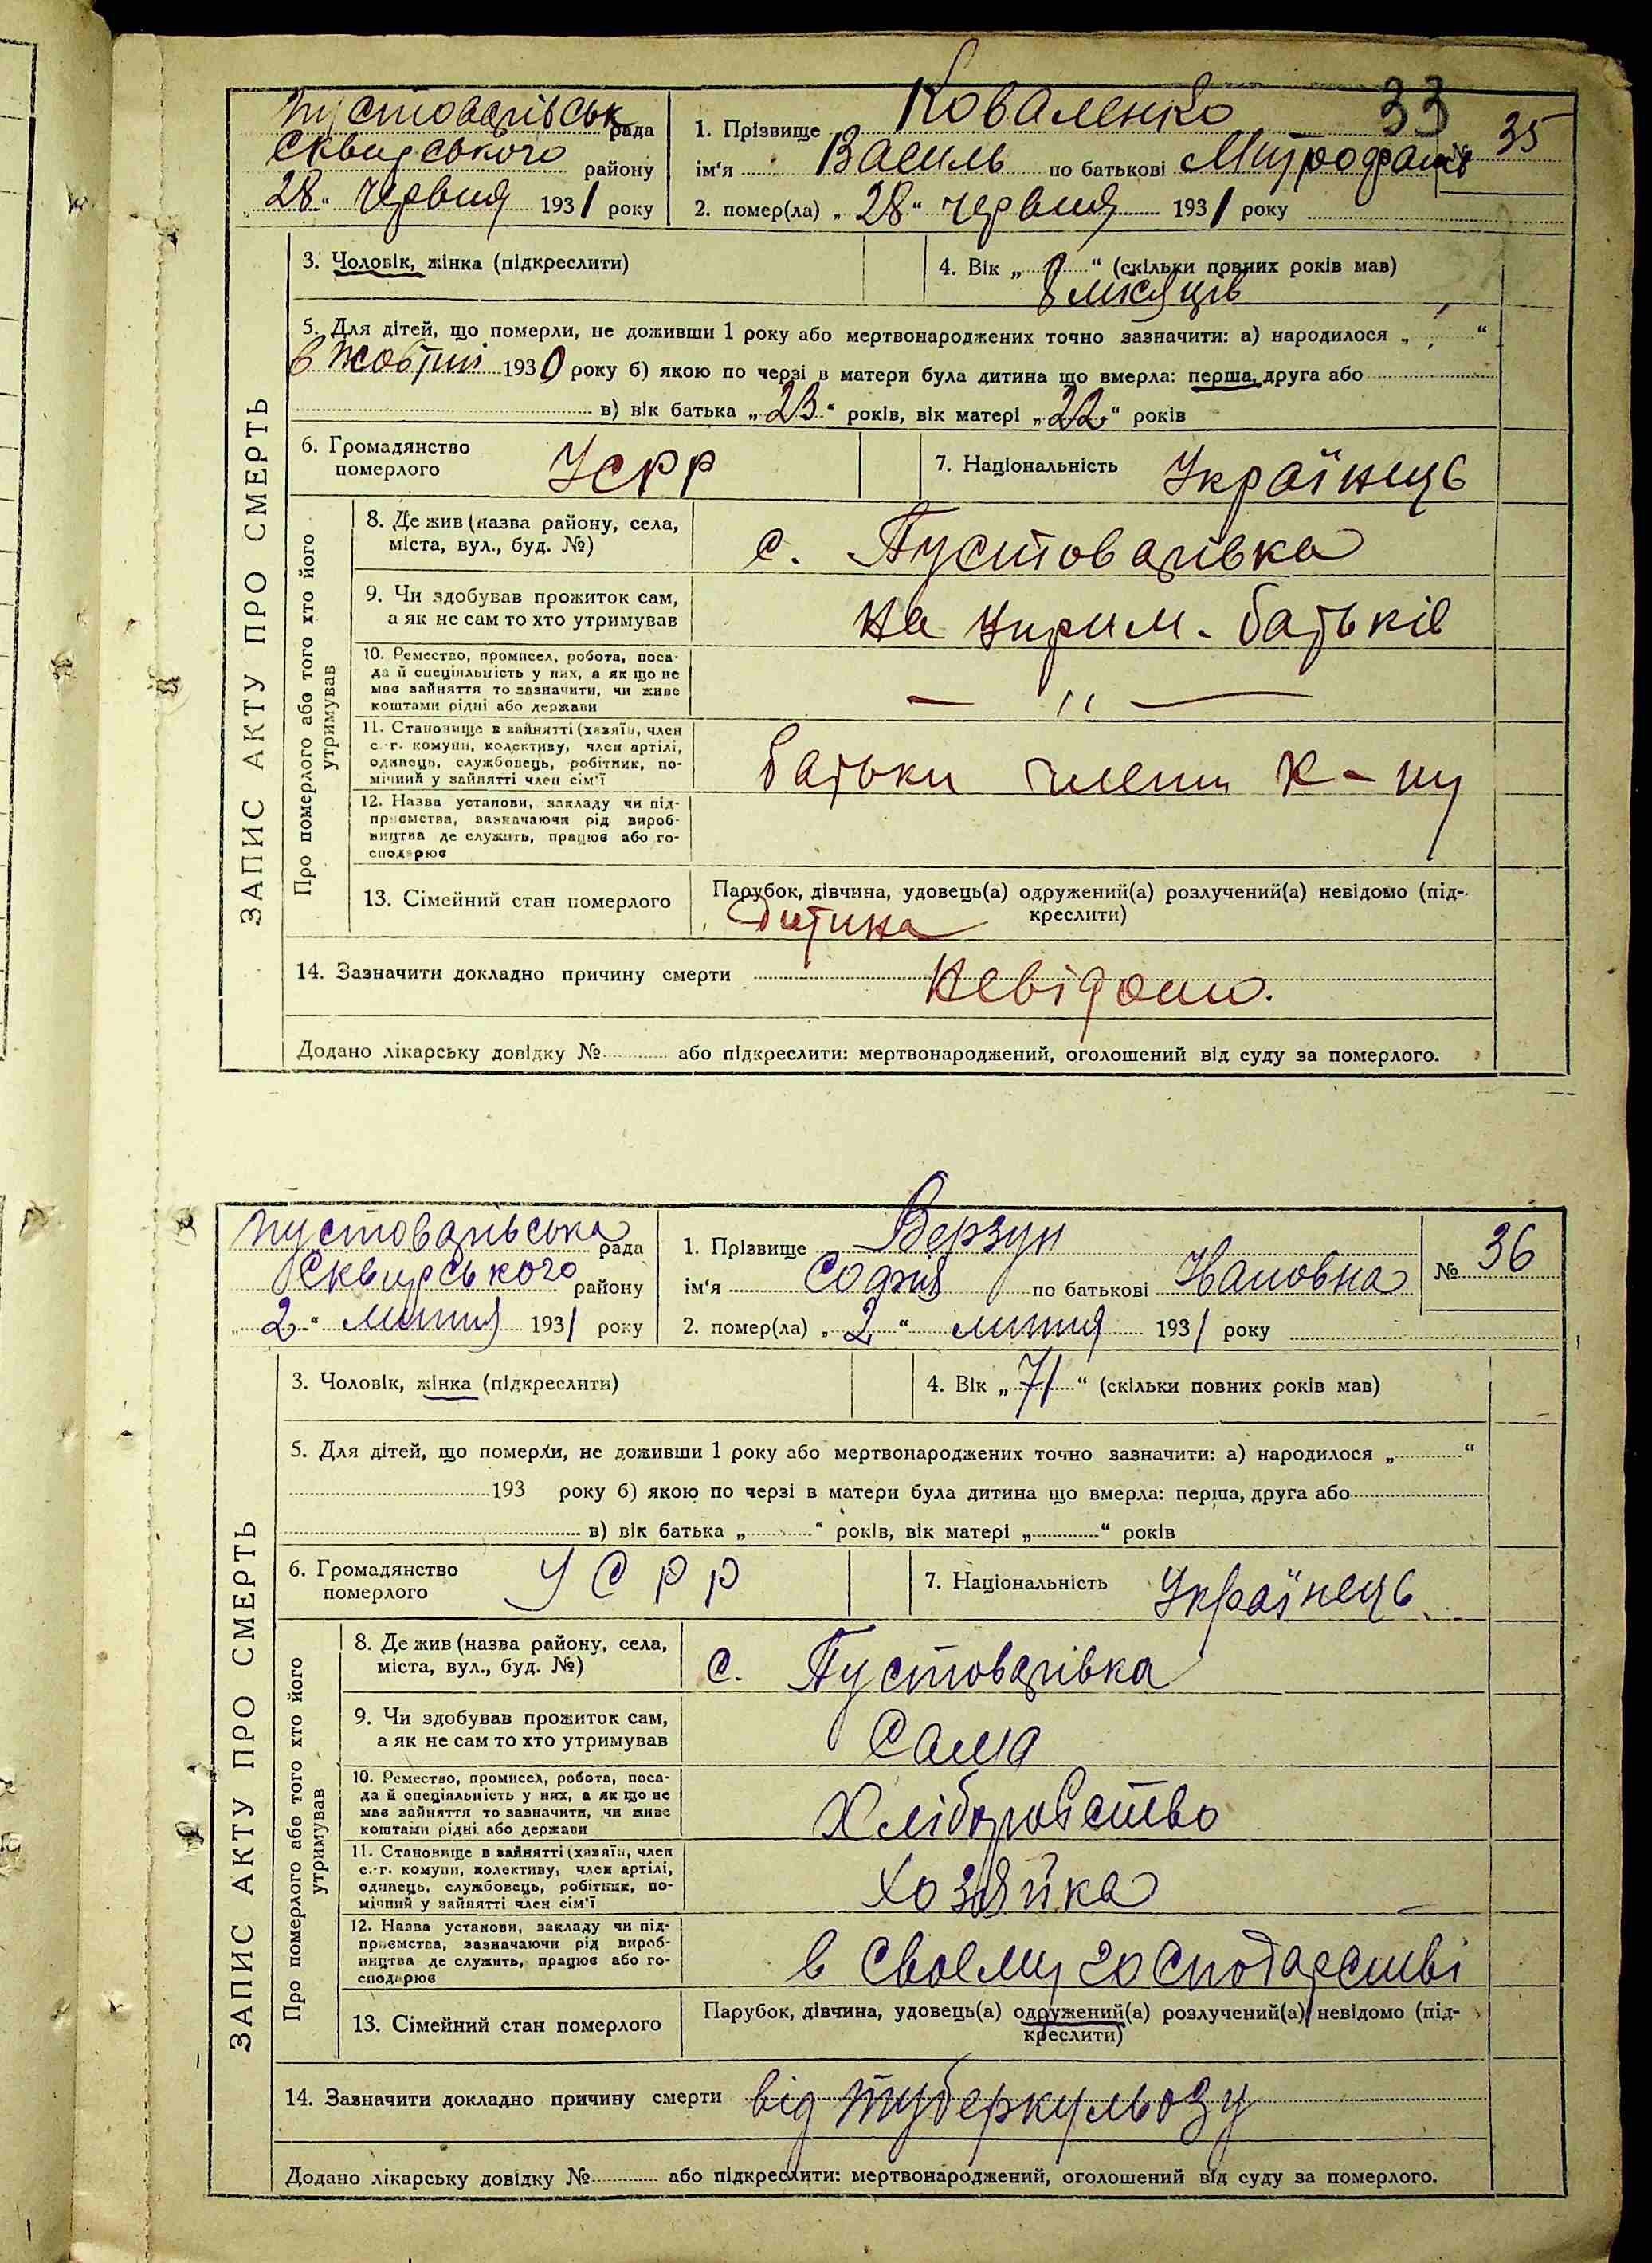 33
Пустоварівськ рада
Сквирського району
„28“ червня 1931 року
1. Прізвище Коваленко
ім‘я Василь по батькові Митрофанов
№ 35
2. помер(ла) „28“ червня 1931 року
ЗАПИС АКТУ ПРО СМЕРТЬ
3. Чоловік, жінка (підкреслити)
4. Вік „0“ (скільки повних років мав)
8 місяців
5. Для дітей, що померли, не доживши 1 року або мертвонароджених точно зазначити: а) народилося „ “
в жовтні 1930 року б) якою по черзі в матери була дитина що вмерла: перша, друга або
в) вік батька „23“ років, вік матері „22“ років
6. Громадянство
померлого
УСРР
7. Національність Українець
Про померлого або того хто його
утримував
8. Де жив (назва району, села,
міста, вул., буд. №)
с. Пустоварівка
9. Чи здобував прожиток сам,
а як не сам то хто утримував
на утрим. батьків
10. Ремество, промисел, робота, поса-
да й спеціяльність у них, а як що не
має зайняття то зазначити, чи живе
коштами рідні або держави
— „ —
11. Становище в зайнятті (хазяїн, член
с.-г. комуни, колективу, член артілі,
одинець, службовець, робітник, по-
мічний у зайнятті член сім'ї
батьки члени к-пу
12. Назва установи, закладу чи під-
приємства, зазначаючи рід вироб-
ництва де служить, працює або го-
сподарює
13. Сімейний стан померлого
Парубок, дівчина, удовець(а) одружений(а) розлучений(а) невідомо (під-
креслити)
Дитина
14. Зазначити докладно причину смерти Невідомо.
Додано лікарську довідку № або підкреслити: мертвонароджений, оголошений від суду за померлого.
Пустоварівська рада
Сквирського району
„2“ липня 1931 року
1. Прізвище Верзун
ім‘я Софія по батькові Івановна
№ 36
2. помер(ла) „2“ липня 1931 року
ЗАПИС АКТУ ПРО СМЕРТЬ
3. Чоловік, жінка (підкреслити)
4. Вік „71“ (скільки повних років мав)
5. Для дітей, що померли, не доживши 1 року або мертвонароджених точно зазначити: а) народилося „ “
193 року б) якою по черзі в матери була дитина що вмерла: перша, друга або
в) вік батька „ “ років, вік матері „ “ років
6. Громадянство
померлого
УСРР
7. Національність Українець
Про померлого або того хто його
утримував
8. Де жив (назва району, села,
міста, вул., буд. №)
с. Пустоварівка
9. Чи здобував прожиток сам,
а як не сам то хто утримував
Сама
10. Ремество, промисел, робота, поса-
да й спеціяльність у них, а як що не
має зайняття то зазначити, чи живе
коштами рідні або держави
Хліборобство
11. Становище в зайнятті (хазяїн, член
с.-г. комуни, колективу, член артілі,
одинець, службовець, робітник, по-
мічний у зайнятті член сім'ї
Хозяйка
12. Назва установи, закладу чи під-
приємства, зазначаючи рід вироб-
ництва де служить, працює або го-
сподарює
в своєму господарстві
13. Сімейний стан померлого
Парубок, дівчина, удовець(а) одружений(а) розлучений(а) невідомо (під-
креслити)
14. Зазначити докладно причину смерти від туберкульозу
Додано лікарську довідку № або підкреслити: мертвонароджений, оголошений від суду за померлого.